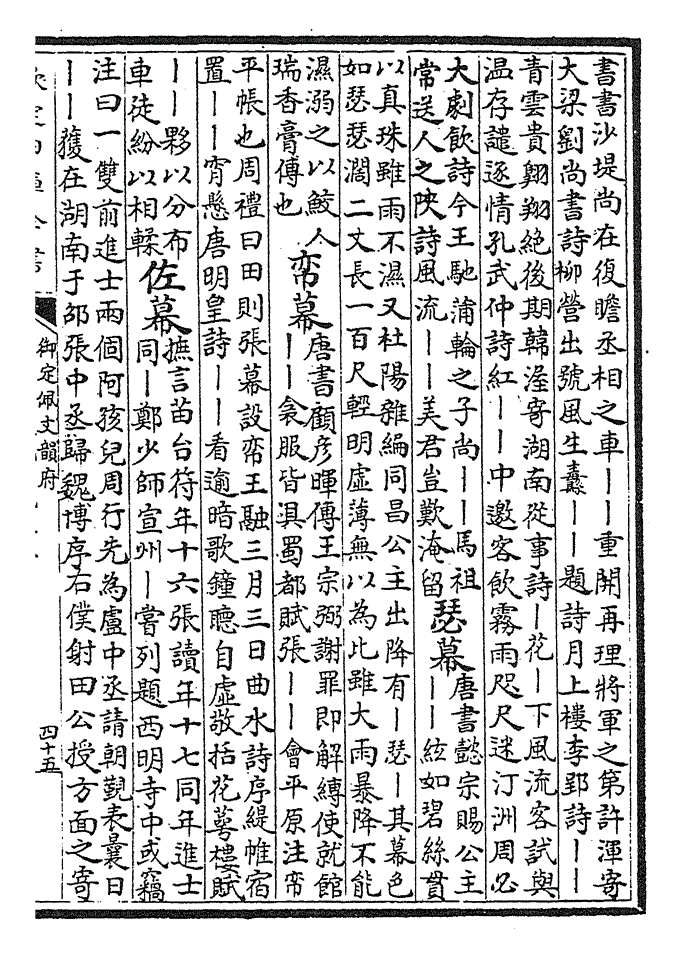 書書沙堤尚在復瞻丞相之車――重開再理將軍之第許渾寄
大梁劉尚書詩柳營出號風生纛――題詩月上樓李郢詩――
青雲貴翺翔絶後期韓渥寄湖南從事詩―花―下風流客試與
温存譴逐情孔武仲詩紅――中邀客飲霧雨咫尺迷汀洲周必
大劇飲詩今王馳蒲輪之子尚――馬祖
常送人之陜詩風流――美君豈歎淹留
瑟幕
唐書懿宗賜公主
――絃如碧絲貫
以真珠雖雨不濕又杜陽雜編同昌公主出降有―瑟―其幕色
如瑟瑟濶二丈長一百尺輕明虚薄無以為此雖大雨暴降不能
濕溺之以鮫人
瑞香膏傅也
帟幕
唐書顧彦暉傳王宗弼謝罪即解縛使就館
――衾服皆具蜀都賦張――會平原注帟
平帳也周禮曰田則張幕設帟王融三月三日曲水詩序緹帷宿
置――宵懸唐明皇詩――看逾暗歌鐘聽自虚敬括花萼樓賦
――夥以分布
車徒紛以相轇
佐幕
摭言苗台符年十六張讀年十七同年進士
同―鄭少師宣州―嘗列題西明寺中或竊
注曰一雙前進士兩個阿孩兒周行先為盧中丞請朝覲表曩日
――獲在湖南于邵張中丞歸魏博序右僕射田公授方面之寄
欽定四庫全書
御定佩文韻府
四十五